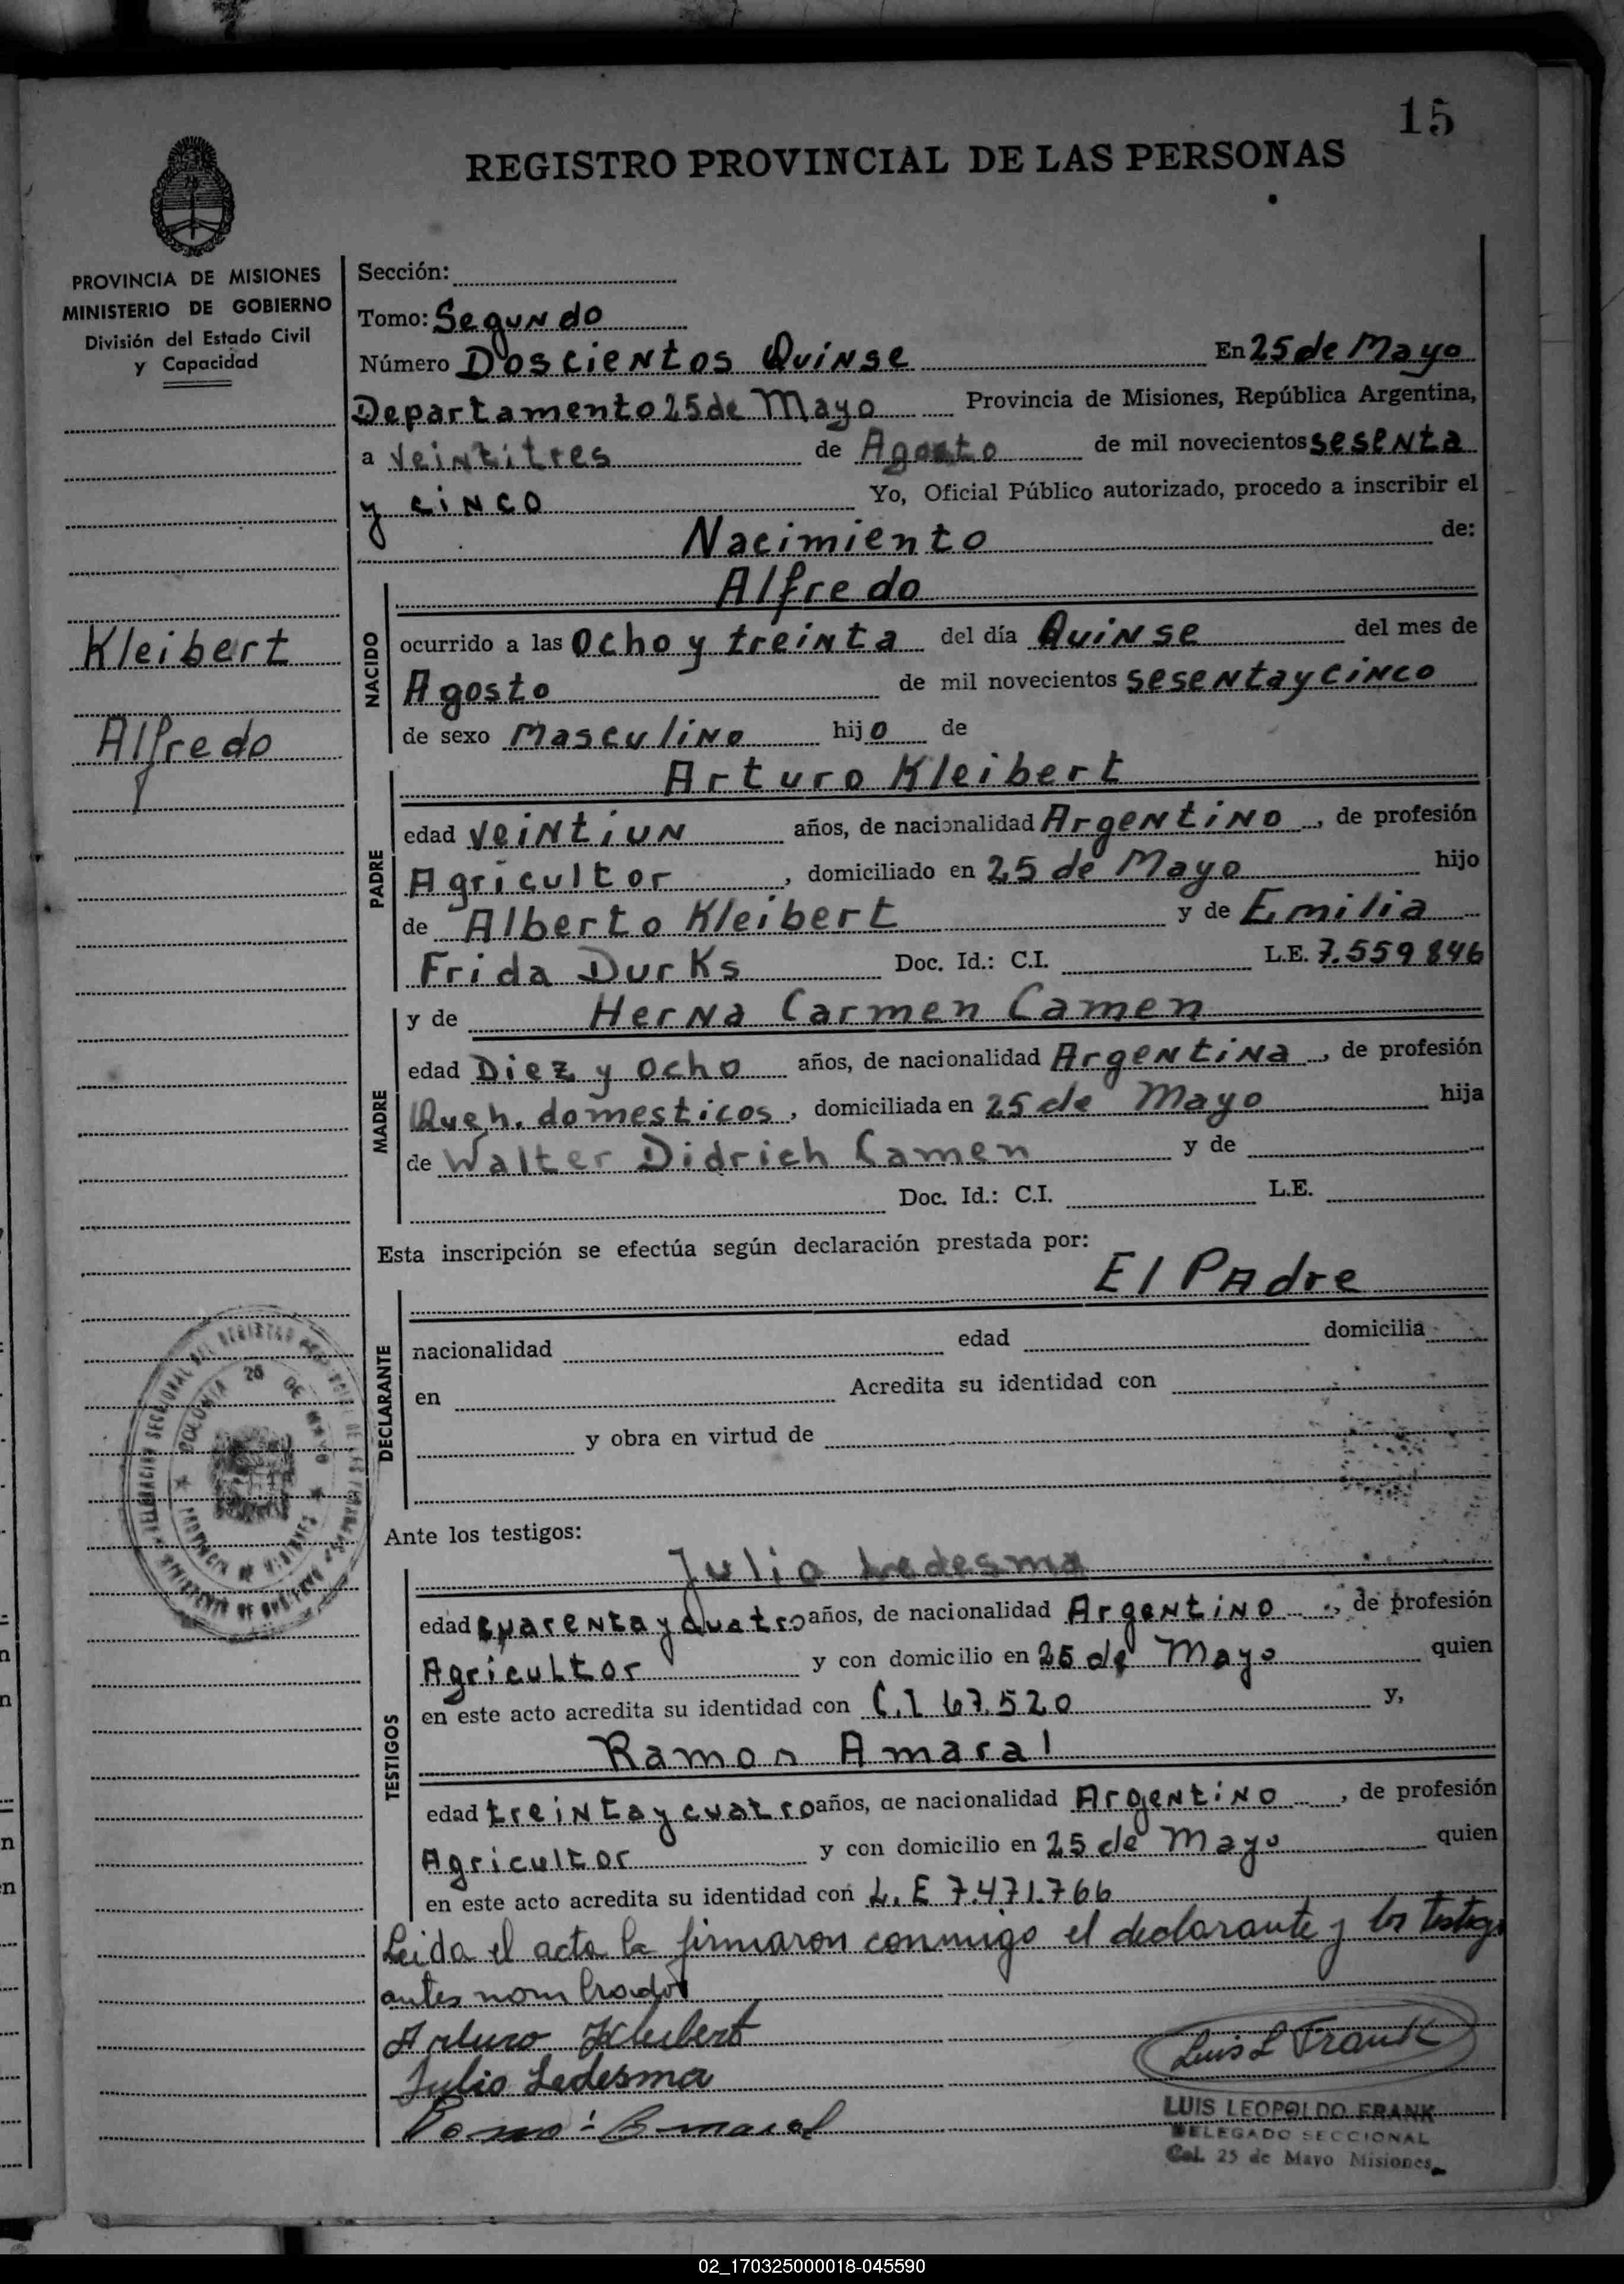 15
REGISTRO PROVINCIAL DE LAS PERSONAS
PROVINCIA DE MISIONES
MINISTERIO DE GOBIERNO
División del Estado Civil
y Capacidad
Kleibert
Alfredo
Sección:
Tomo: Segundo
Número Doscientos Quinse En 25 de Mayo
Departamento 25 de Mayo Provincia de Misiones, República Argentina,
a Veintitres de Agosto de mil novecientos sesenta
y cinco Yo, Oficial Público autorizado, procedo a inscribir el
Nacimiento de:
NACIDO
Alfredo
ocurrido a las Ocho y treinta del día Quinse del mes de
Agosto de mil novecientos sesenta y cinco
de sexo Masculino hijo de
PADRE
Arturo Kleibert
edad Veintiun años, de nacionalidad Argentino, de profesión
Agricultor, domiciliado en 25 de Mayo hijo
de Alberto Kleibert y de Emilia
Frida Durks Doc. Id.: C.I. L.E. 7.559846
MADRE
y de Herna Carmen Camen
edad Diez y ocho años, de nacionalidad Argentina, de profesión
Queh. domesticos, domiciliada en 25 de Mayo hija
de Walter Didrich Camen y de
Doc. Id.: C.I. L.E.
Esta inscripción se efectúa según declaración prestada por:
El Padre
DECLARANTE
nacionalidad edad domicilia
en Acredita su identidad con
y obra en virtud de
COLONIA 25 DE MAYO
PROVINCIA DE MISIONES
Ante los testigos:
TESTIGOS
Julio Ledesma
edad cuarenta y quatro años, de nacionalidad Argentino, de profesión
Agricultor y con domicilio en 25 de Mayo quien
en este acto acredita su identidad con C.I 67.520 y,
Ramon Amaral
edad treinta y cuatro años, de nacionalidad Argentino, de profesión
Agricultor y con domicilio en 25 de Mayo quien
en este acto acredita su identidad con L.E 7.471.766
Leida el acta la firmaron conmigo el declarante y los testigos
antes nombrados
Arturo Kleibert
Julio Ledesma
Luis L Frank
LUIS LEOPOLDO FRANK
DELEGADO SECCIONAL
Col. 25 de Mayo Misiones
02_170325000018-045590